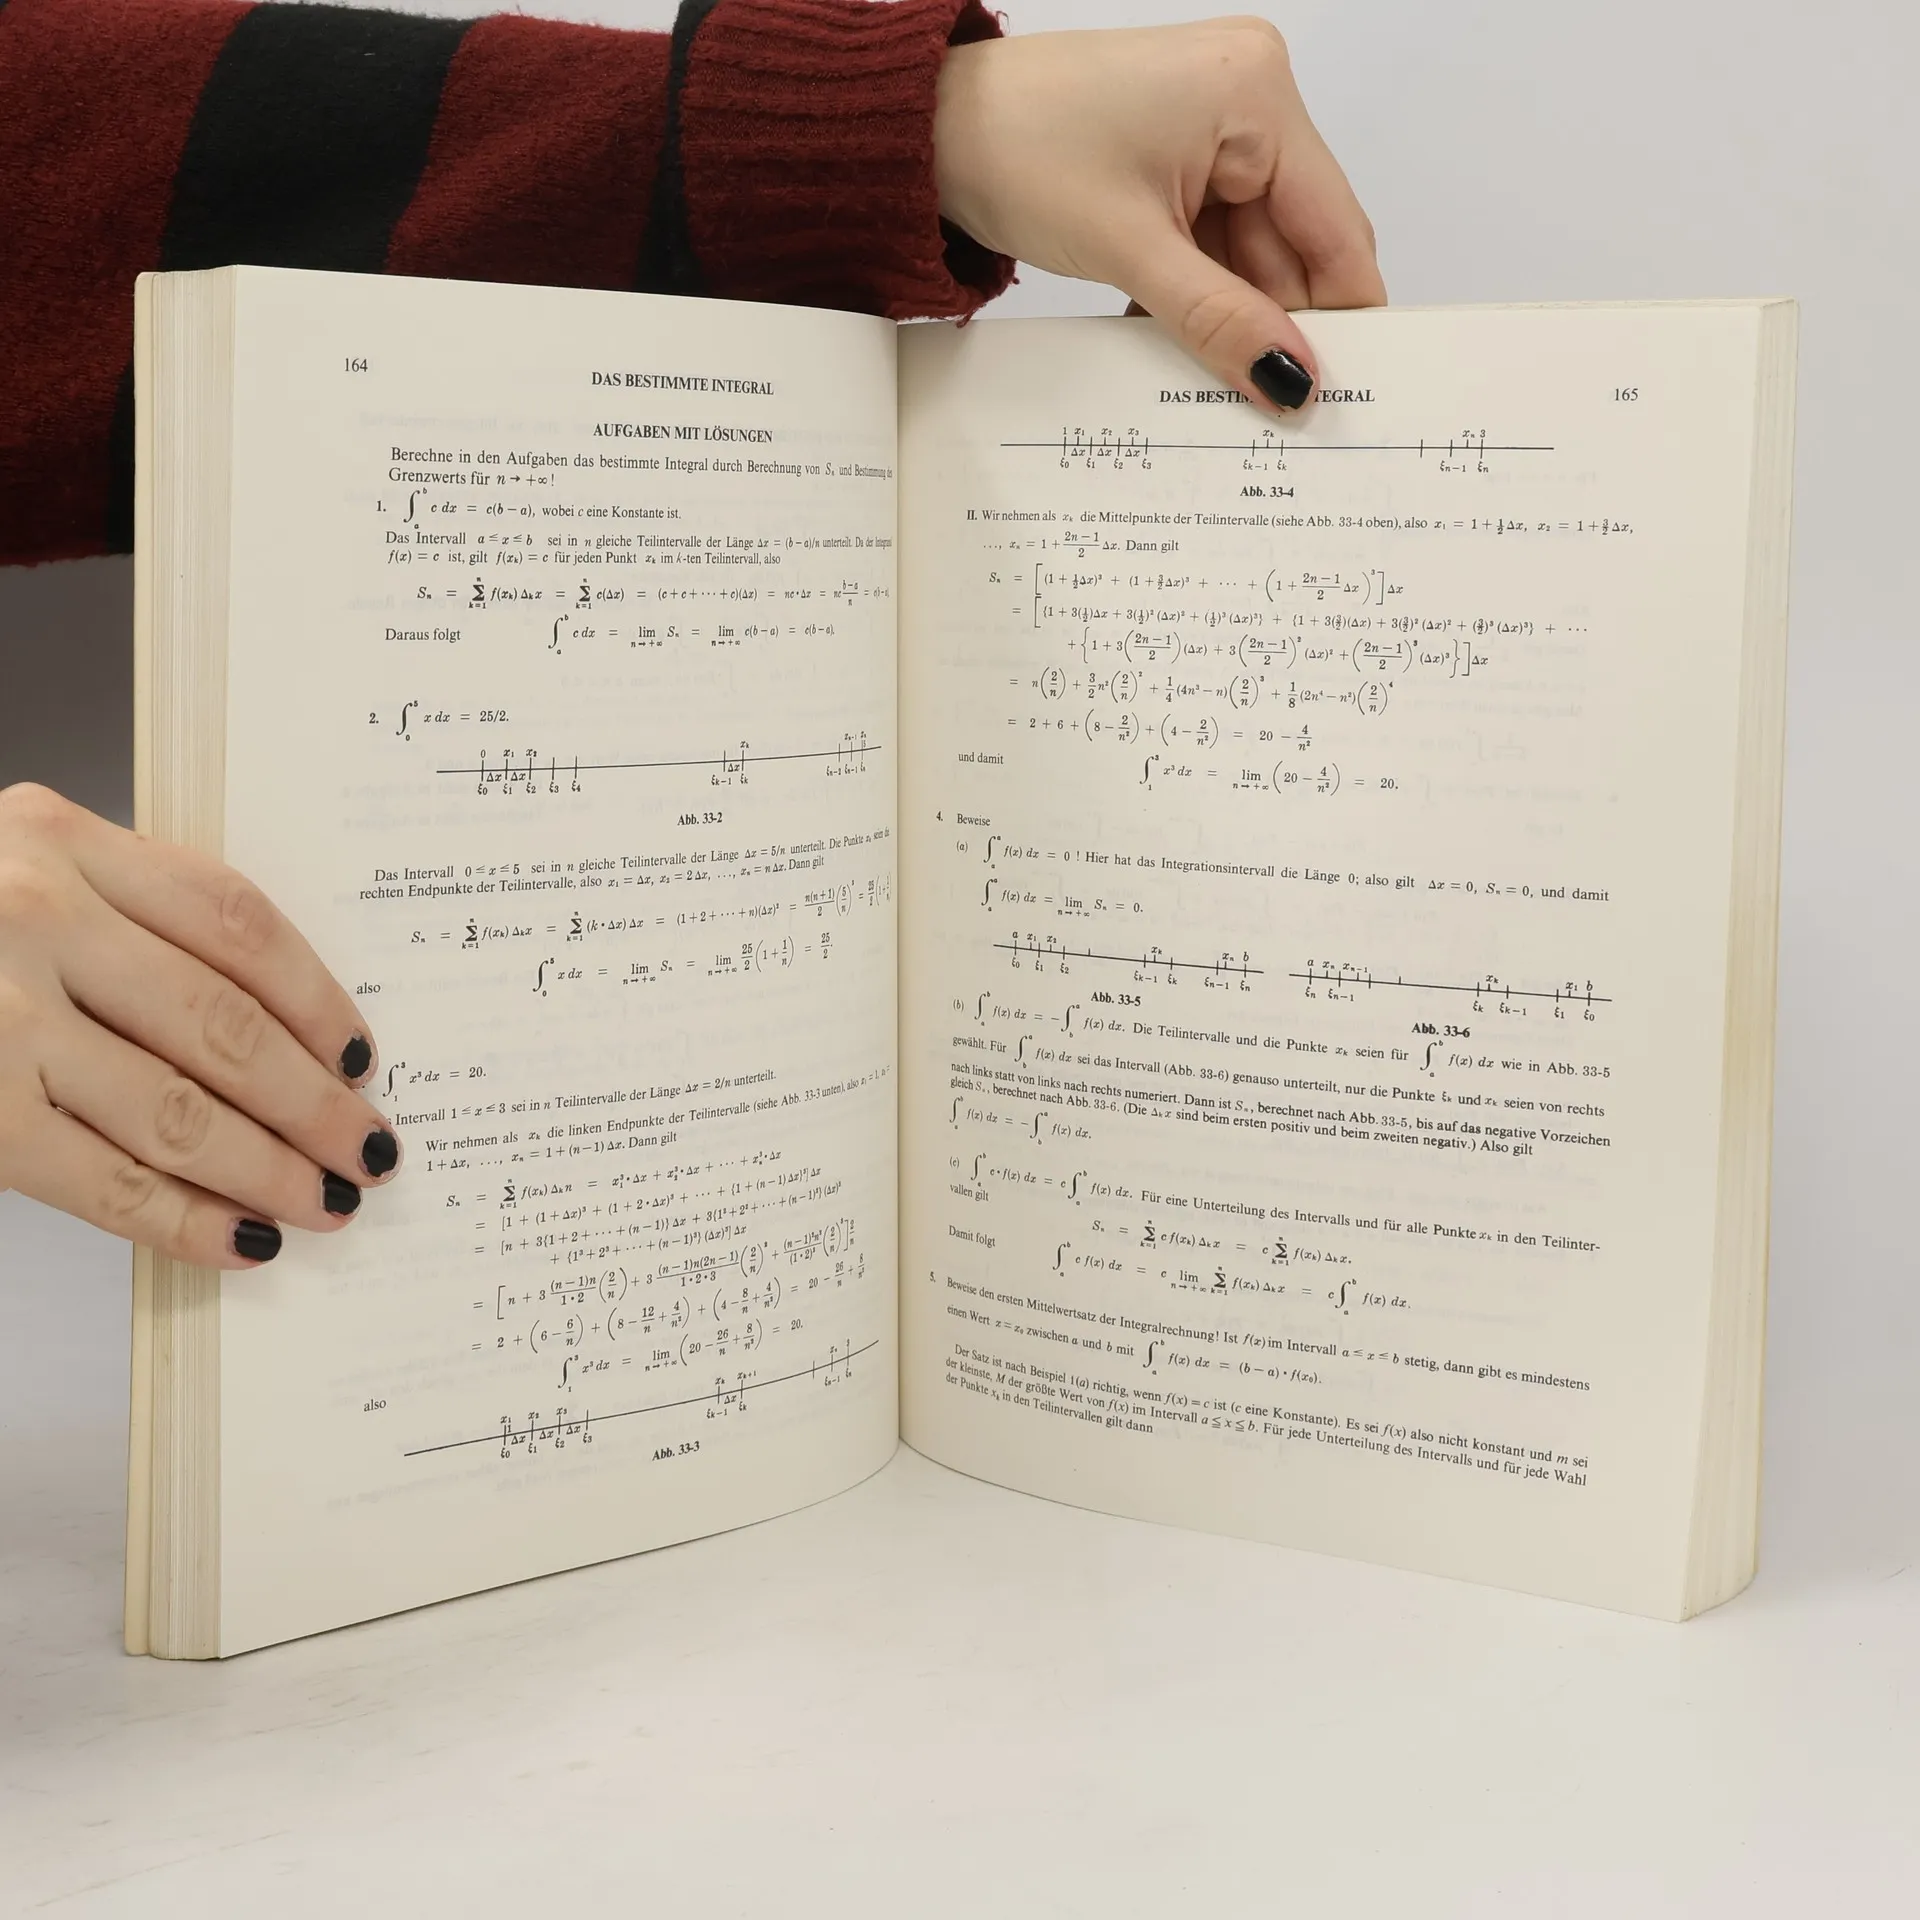 164
DAS BESTIMMTE INTEGRAL
AUFGABEN MIT LÖSUNGEN
Berechne in den Aufgaben das bestimmte Integral durch Berechnung von Sₙ und Bestimmung
Grenzwerts für n → +∞ !
1. ∫ₐᵇ c dx = c(b − a), wobei c eine Konstante ist.
Das Intervall a ≤ x ≤ b sei in n gleiche Teilintervalle der Länge Δx = (b − a)/n unterteilt. Da der
f(x) = c ist, gilt f(xₖ) = c für jeden Punkt xₖ im k-ten Teilintervall, also
Sₙ = ∑ₖ₌₁ⁿ f(xₖ) Δₖx = ∑ₖ₌₁ⁿ c(Δx) = (c + c + ··· + c)(Δx) = nc · Δx = nc (b−a)/n =
Daraus folgt ∫ₐᵇ c dx = lim n→+∞ Sₙ = lim n→+∞ c(b − a) = c(b − a).
2. ∫₀⁵ x dx = 25/2.
0 x₁ x₂ xₖ
Δx Δx Δx
ξ₀ ξ₁ ξ₂ ξ₃ ξ₄ ξₖ₋₁ ξₖ
Abb. 33-2
Das Intervall 0 ≤ x ≤ 5 sei in n gleiche Teilintervalle der Länge Δx = 5/n unterteilt. Die Punkte xₖ seien
rechten Endpunkte der Teilintervalle, also x₁ = Δx, x₂ = 2 Δx, ..., xₙ = n Δx. Dann gilt
Sₙ = ∑ₖ₌₁ⁿ f(xₖ) Δₖx = ∑ₖ₌₁ⁿ (k · Δx) Δx = (1 + 2 + ··· + n)(Δx)² = n(n+1)/2 (5/n)² =
also ∫₀⁵ x dx = lim n→+∞ Sₙ = lim n→+∞ 25/2 (1 + 1/n) = 25/2.
∫₁³ x³ dx = 20.
Intervall 1 ≤ x ≤ 3 sei in n Teilintervalle der Länge Δx = 2/n unterteilt.
Wir nehmen als xₖ die linken Endpunkte der Teilintervalle (siehe Abb. 33-3 unten), also x₁ = 1,
1 + Δx, ..., xₙ = 1 + (n − 1) Δx. Dann gilt
Sₙ = ∑ₖ₌₁ⁿ f(xₖ) Δₖn = x₁³ · Δx + x₂³ · Δx + ··· + xₙ³ · Δx
= [1 + (1 + Δx)³ + (1 + 2 · Δx)³ + ··· + {1 + (n − 1) Δx}³] Δx
= [n + 3{1 + 2 + ··· + (n − 1)} Δx + 3{1² + 2² + ··· + (n − 1)²} (Δx)²
+ {1³ + 2³ + ··· + (n − 1)³} (Δx)³] Δx
= [n + 3 (n−1)n/1·2 (2/n) + 3 (n−1)n(2n−1)/1·2·3 (2/n)² + (n−1)²n²/(1·2)² (2/n)³] 2/n
= 2 + (6 − 6/n) + (8 − 12/n + 4/n²) + (4 − 8/n + 4/n²) = 20 − 26/n + 8/n²
also ∫₁³ x³ dx = lim n→+∞ (20 − 26/n + 8/n²) = 20.
x₁ x₂ x₃ xₖ xₖ₊₁ xₙ 3
1 Δx Δx Δx Δx
ξ₀ ξ₁ ξ₂ ξ₃ ξₖ₋₁ ξₖ ξₙ₋₁ ξₙ
Abb. 33-3
DAS BESTIM TEGRAL
165
1 x₁ x₂ x₃ xₖ xₙ 3
Δx Δx Δx
ξ₀ ξ₁ ξ₂ ξ₃ ξₖ₋₁ ξₖ ξₙ₋₁ ξₙ
Abb. 33-4
II. Wir nehmen als xₖ die Mittelpunkte der Teilintervalle (siehe Abb. 33-4 oben), also x₁ = 1 + ½Δx, x₂ = 1 + 3/2 Δx,
..., xₙ = 1 + (2n−1)/2 Δx. Dann gilt
Sₙ = [(1 + ½Δx)³ + (1 + 3/2 Δx)³ + ··· + (1 + (2n−1)/2 Δx)³] Δx
= [{1 + 3(½)Δx + 3(½)² (Δx)² + (½)³ (Δx)³} + {1 + 3(3/2)(Δx) + 3(3/2)² (Δx)² + (3/2)³ (Δx)³} + ···
+ {1 + 3((2n−1)/2)(Δx) + 3((2n−1)/2)² (Δx)² + ((2n−1)/2)³ (Δx)³}] Δx
= n(2/n) + 3/2 n² (2/n)² + 1/4 (4n³ − n)(2/n)³ + 1/8 (2n⁴ − n²)(2/n)⁴
= 2 + 6 + (8 − 2/n²) + (4 − 2/n²) = 20 − 4/n²
und damit ∫₁³ x³ dx = lim n→+∞ (20 − 4/n²) = 20.
4. Beweise
(a) ∫ₐᵃ f(x) dx = 0 ! Hier hat das Integrationsintervall die Länge 0; also gilt Δx = 0, Sₙ = 0, und damit
∫ₐᵃ f(x) dx = lim n→+∞ Sₙ = 0.
a x₁ x₂ xₖ xₙ b
ξ₀ ξ₁ ξ₂ ξₖ₋₁ ξₖ ξₙ₋₁ ξₙ
Abb. 33-5
a xₙ xₙ₋₁ xₖ x₁ b
ξₙ ξₙ₋₁ ξₖ ξₖ₋₁ ξ₁ ξ₀
Abb. 33-6
(b) ∫ₐᵇ f(x) dx = −∫ᵇᵃ f(x) dx. Die Teilintervalle und die Punkte xₖ seien für ∫ₐᵇ f(x) dx wie in Abb. 33-5
gewählt. Für ∫ᵇᵃ f(x) dx sei das Intervall (Abb. 33-6) genauso unterteilt, nur die Punkte ξₖ und xₖ seien von rechts
nach links statt von links nach rechts numeriert. Dann ist Sₙ, berechnet nach Abb. 33-5, bis auf das negative Vorzeichen
gleich Sₙ, berechnet nach Abb. 33-6. (Die Δₖx sind beim ersten positiv und beim zweiten negativ.) Also gilt
∫ₐᵇ f(x) dx = −∫ᵇᵃ f(x) dx.
(c) ∫ₐᵇ c · f(x) dx = c ∫ₐᵇ f(x) dx. Für eine Unterteilung des Intervalls und für alle Punkte xₖ in den Teilinter-
vallen gilt
Sₙ = ∑ₖ₌₁ⁿ c f(xₖ) Δₖx = c ∑ₖ₌₁ⁿ f(xₖ) Δₖx.
Damit folgt ∫ₐᵇ c f(x) dx = c lim n→+∞ ∑ₖ₌₁ⁿ f(xₖ) Δₖx = c ∫ₐᵇ f(x) dx.
5. Beweise den ersten Mittelwertsatz der Integralrechnung! Ist f(x) im Intervall a ≤ x ≤ b stetig, dann gibt es mindestens
einen Wert x = x₀ zwischen a und b mit ∫ₐᵇ f(x) dx = (b − a) · f(x₀).
Der Satz ist nach Beispiel 1(a) richtig, wenn f(x) = c ist (c eine Konstante). Es sei f(x) also nicht konstant und m sei
der kleinste, M der größte Wert von f(x) im Intervall a ≦ x ≦ b. Für jede Unterteilung des Intervalls und für jede Wahl
der Punkte xₖ in den Teilintervallen gilt dann